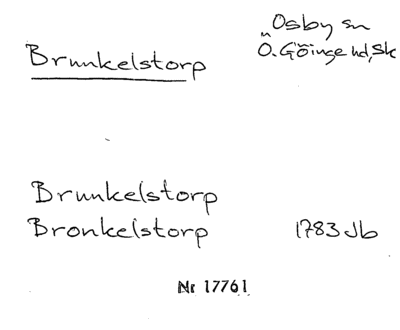 Osby sn
Brunkelstorp
Ö. Göinge hd, Sk
Brunkelstorp
Bronkelstorp 1783 Jb
Nr 17761